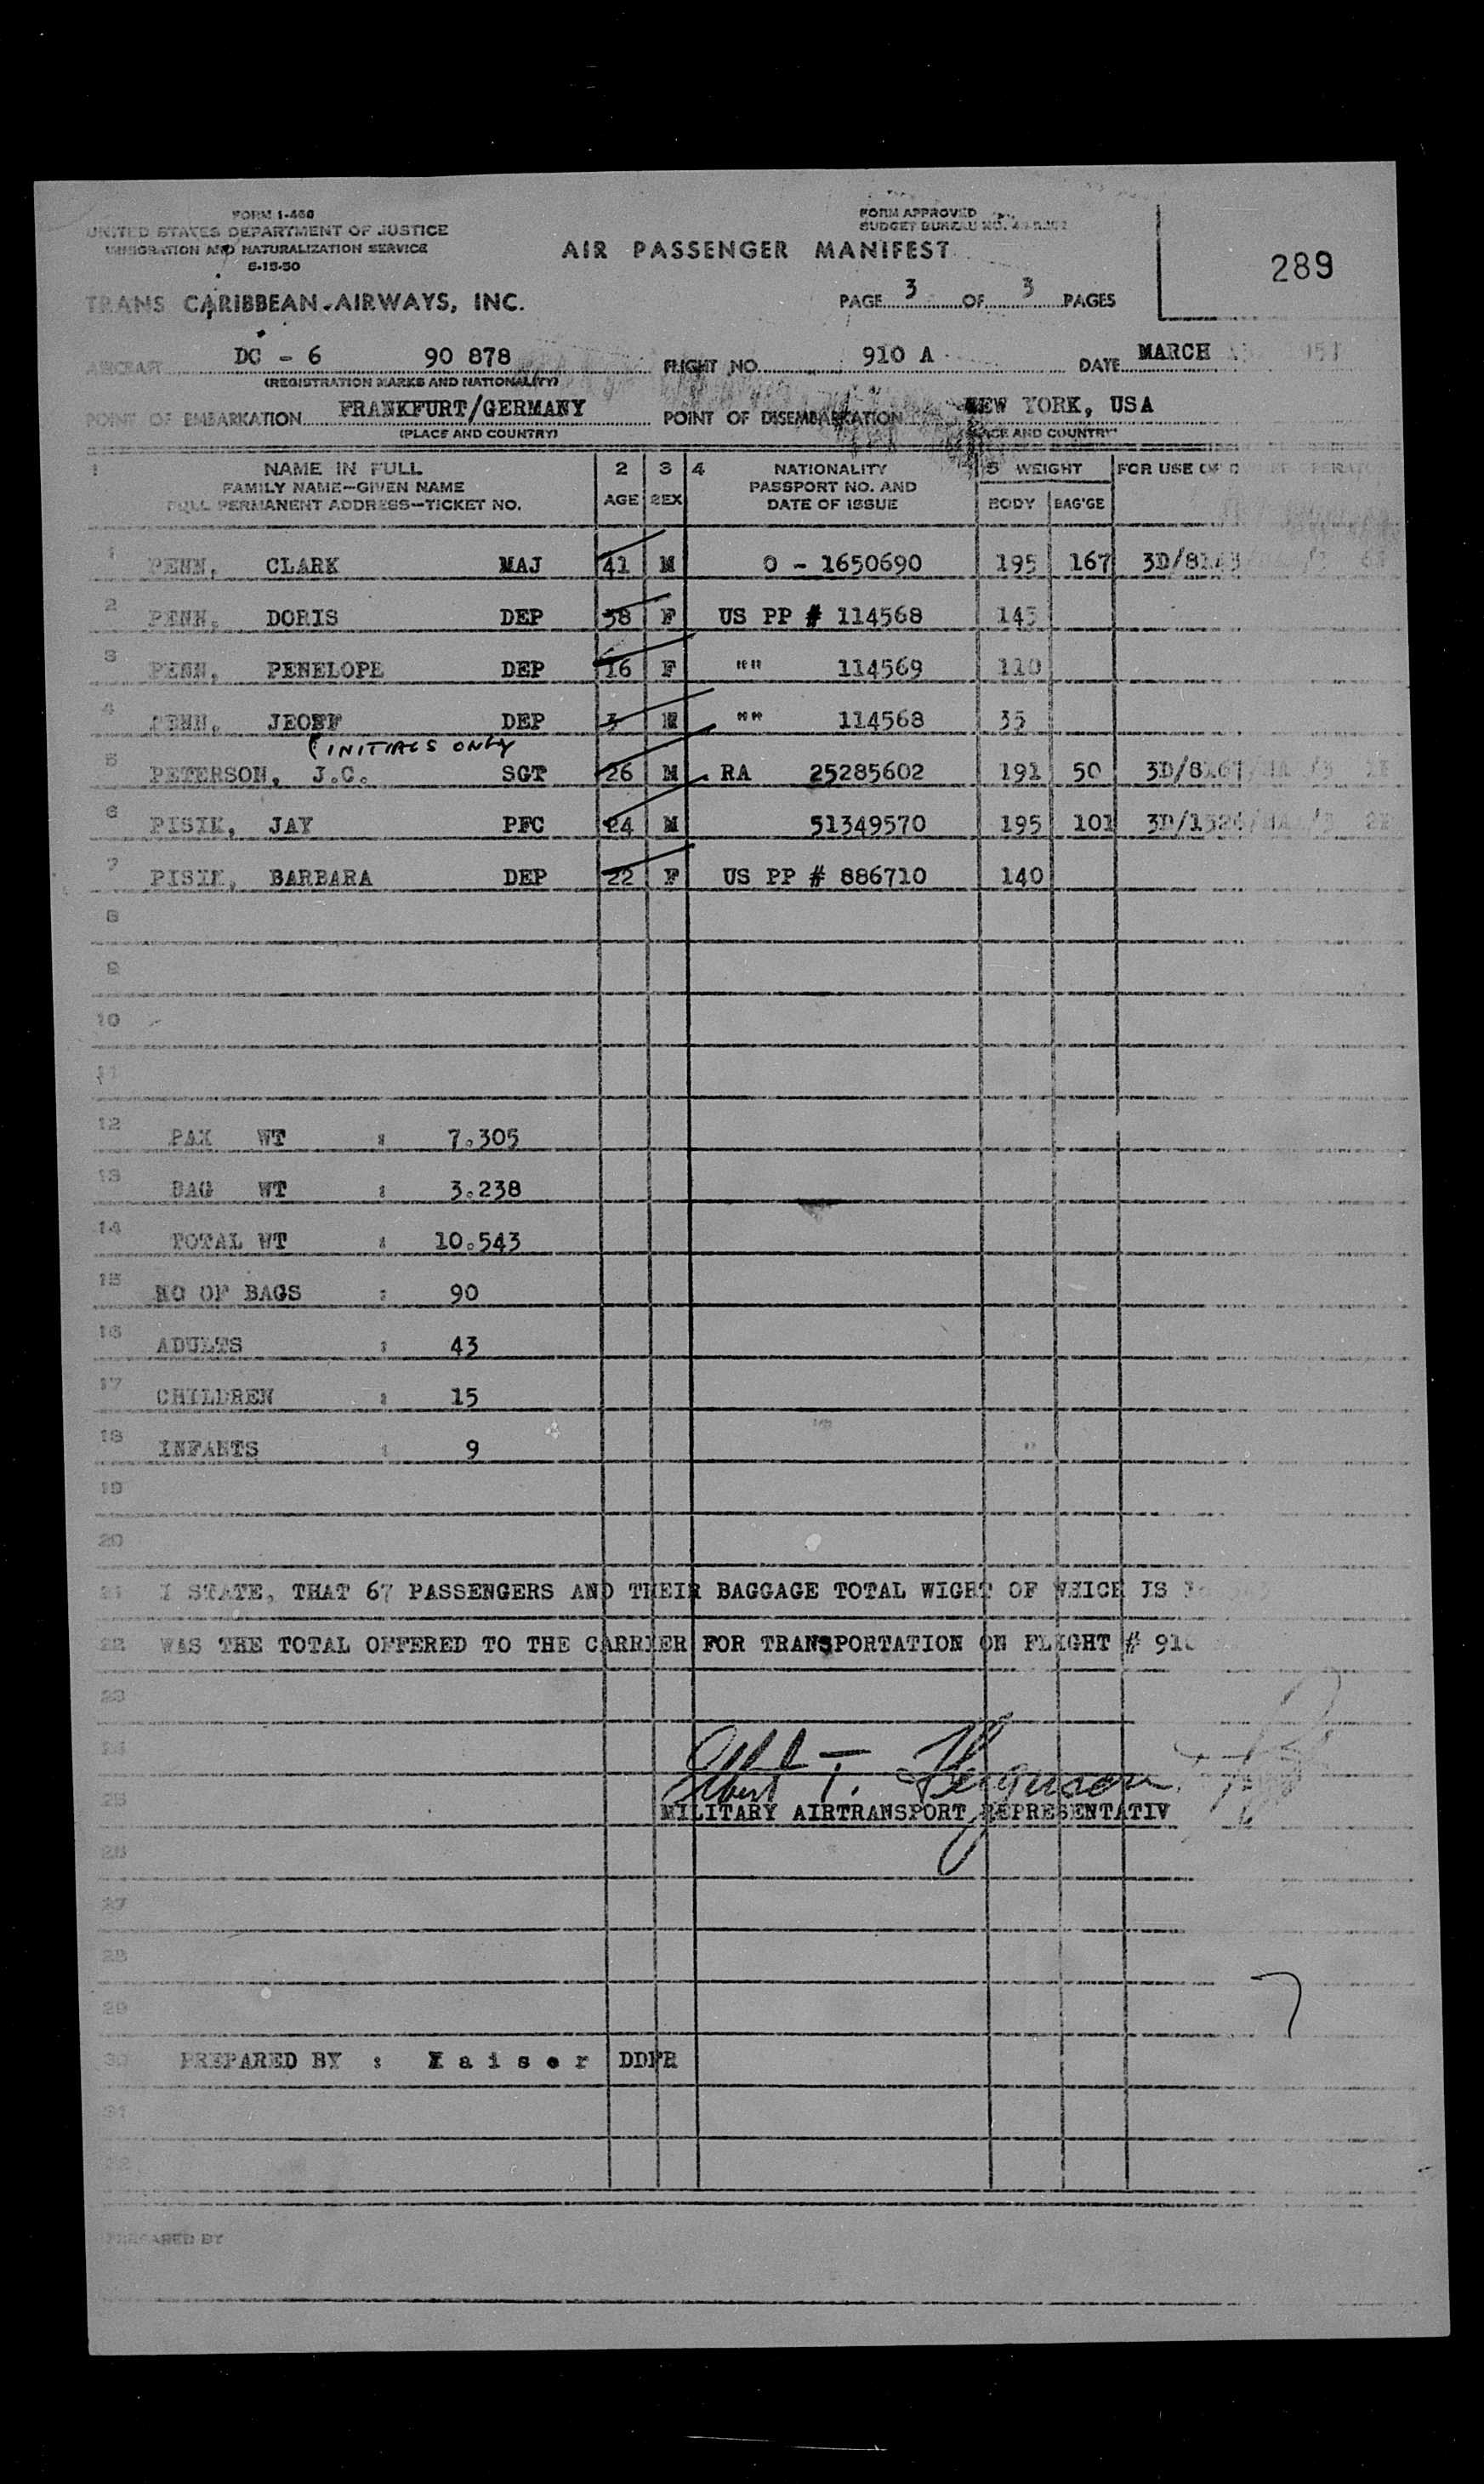 FORM I-466
UNITED STATES DEPARTMENT OF JUSTICE
IMMIGRATION AND NATURALIZATION SERVICE
6-15-50
FORM APPROVED
BUDGET BUREAU NO.
AIR PASSENGER MANIFEST
289
TRANS CARIBBEAN AIRWAYS, INC.
PAGE 3 OF 3 PAGES
AIRCRAFT DC - 6 90 878 FLIGHT NO. 910 A DATE MARCH
(REGISTRATION MARKS AND NATIONALITY)
POINT OF EMBARKATION FRANKFURT/GERMANY POINT OF DISEMBARKATION NEW YORK, USA
(PLACE AND COUNTRY) PLACE AND COUNTRY
1 NAME IN FULL 2 3 4 NATIONALITY 5 WEIGHT FOR USE OF
FAMILY NAME—GIVEN NAME PASSPORT NO. AND
FULL PERMANENT ADDRESS—TICKET NO. AGE SEX DATE OF ISSUE BODY BAG'GE
1 PENN, CLARK MAJ 41 M O - 1650690 195 167
2 PENN, DORIS DEP 38 F US PP # 114568 145
3 PENN, PENELOPE DEP 16 F "" 114569 110
4 PENN, JEOFF DEP 3 M "" 114568 35
(INITIALS ONLY
5 PETERSON, J.C. SGT 26 M RA 25285602 191 50
6 PISIK, JAY PFC 24 M 51349570 195 101
7 PISIK, BARBARA DEP 22 F US PP # 886710 140
8
9
10
11
12 PAX WT : 7.305
13 BAG WT : 3.238
14 TOTAL WT : 10.543
15 NO OF BAGS : 90
16 ADULTS : 43
17 CHILDREN : 15
18 INFANTS : 9
19
20
21 I STATE, THAT 67 PASSENGERS AND THEIR BAGGAGE TOTAL WIGHT OF WHICH IS
22 WAS THE TOTAL OFFERED TO THE CARRIER FOR TRANSPORTATION ON FLIGHT # 910
23
24
Elbert T. Ferguson
25 MILITARY AIRTRANSPORT REPRESENTATIV
26
27
28
29
30 PREPARED BY : K a i s e r DDFR
31
32
PREPARED BY